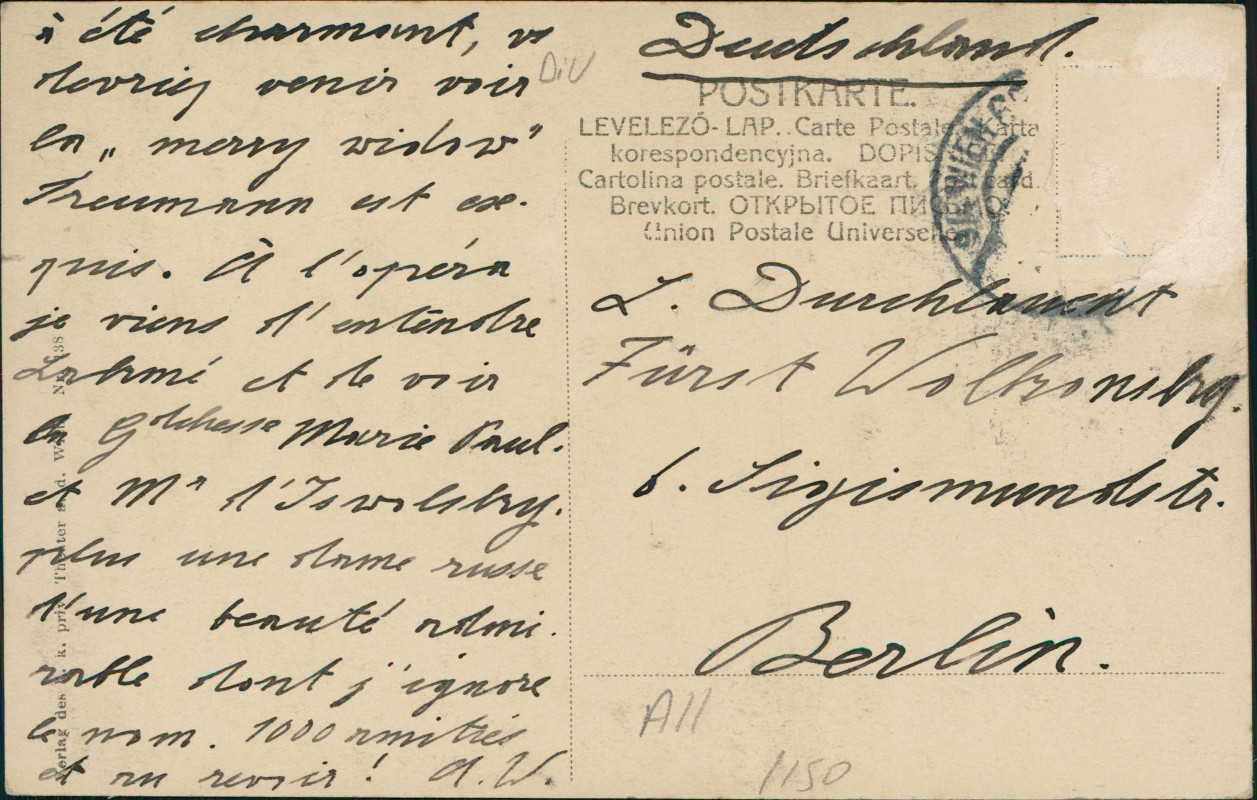 à été charmant, vs
devriez venir voir
la „merry widow"
Treumann est ex-
quis. À l'opéra
je viens d'entendre
Lakmé et de voir
la Gdchesse Marie Paul.
et Mr d'Iswolsky.
plus une dame russe
d'une beauté admi-
rable dont j'ignore
le nom. 1000 amitiés
et au revoir! A.W.
Verlag des k. k. priv. Theater a. d. Wien
DiV
Deutschland.
POSTKARTE.
LEVELEZŐ-LAP. Carte Postale. Karta
korespondencyjna. DOPIS
Cartolina postale. Briefkaart.
Brevkort. ОТКРЫТОЕ
Union Postale Universelle
WIEN
S. Durchlaucht
Fürst Wolkonsky.
6. Sigismundstr.
Berlin.
A11
1150